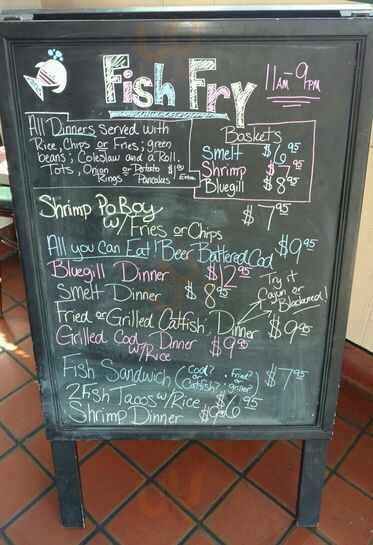 Fish Fry
11AM - 9PM
All Dinners served with
Rice, Chips or Fries; green
beans; Coleslaw and a Roll.
Tots, Onion Rings or Potato Pancakes $1.00 Extra
Baskets
Smelt $6.95
Shrimp
Bluegill $8.95
Shrimp Po Boy
w/ Fries or Chips $7.95
All you can Eat! Beer Battered Cod $9.95
Bluegill Dinner $12.95
Smelt Dinner $8.95
Try it
Cajun or
Blackened!
Fried or Grilled Catfish; Dinner $9.95
Grilled Cod Dinner $9.95
w/Rice
Fish Sandwich (Cod? or Catfish? Fried? or grilled?) $7.95
2 Fish Tacos w/ Rice $6.95
Shrimp Dinner